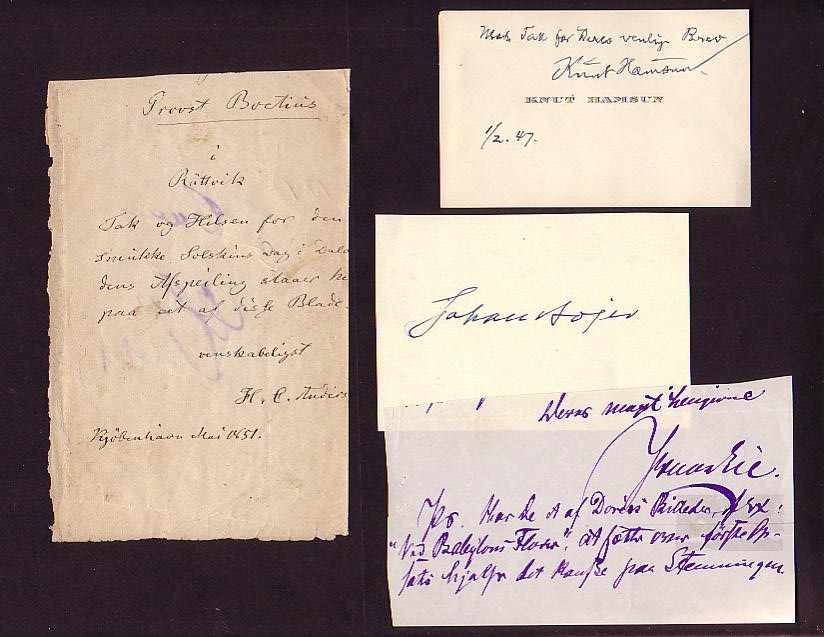 Provst Boëtius
i
Rättvik
Tak og Hilsen for den
smukke Solskins Dag i Dale
dens Afspeiling staaer he
paa eet af disse Blade.
venskabeligst
H. C. Anders
Kjöbenhavn Mai 1851.
Med Tak for Deres venlige Brev
Knut Hamsun.
KNUT HAMSUN
1/2. 47.
Johan Bojer
Deres meget hengivne
Jonas Lie.
Ps. Har De et af Dorés Billeder, f Ex:
"Ved Babylons Floder". at sætte over første Op-
sats hjalp det kanske paa Stemningen